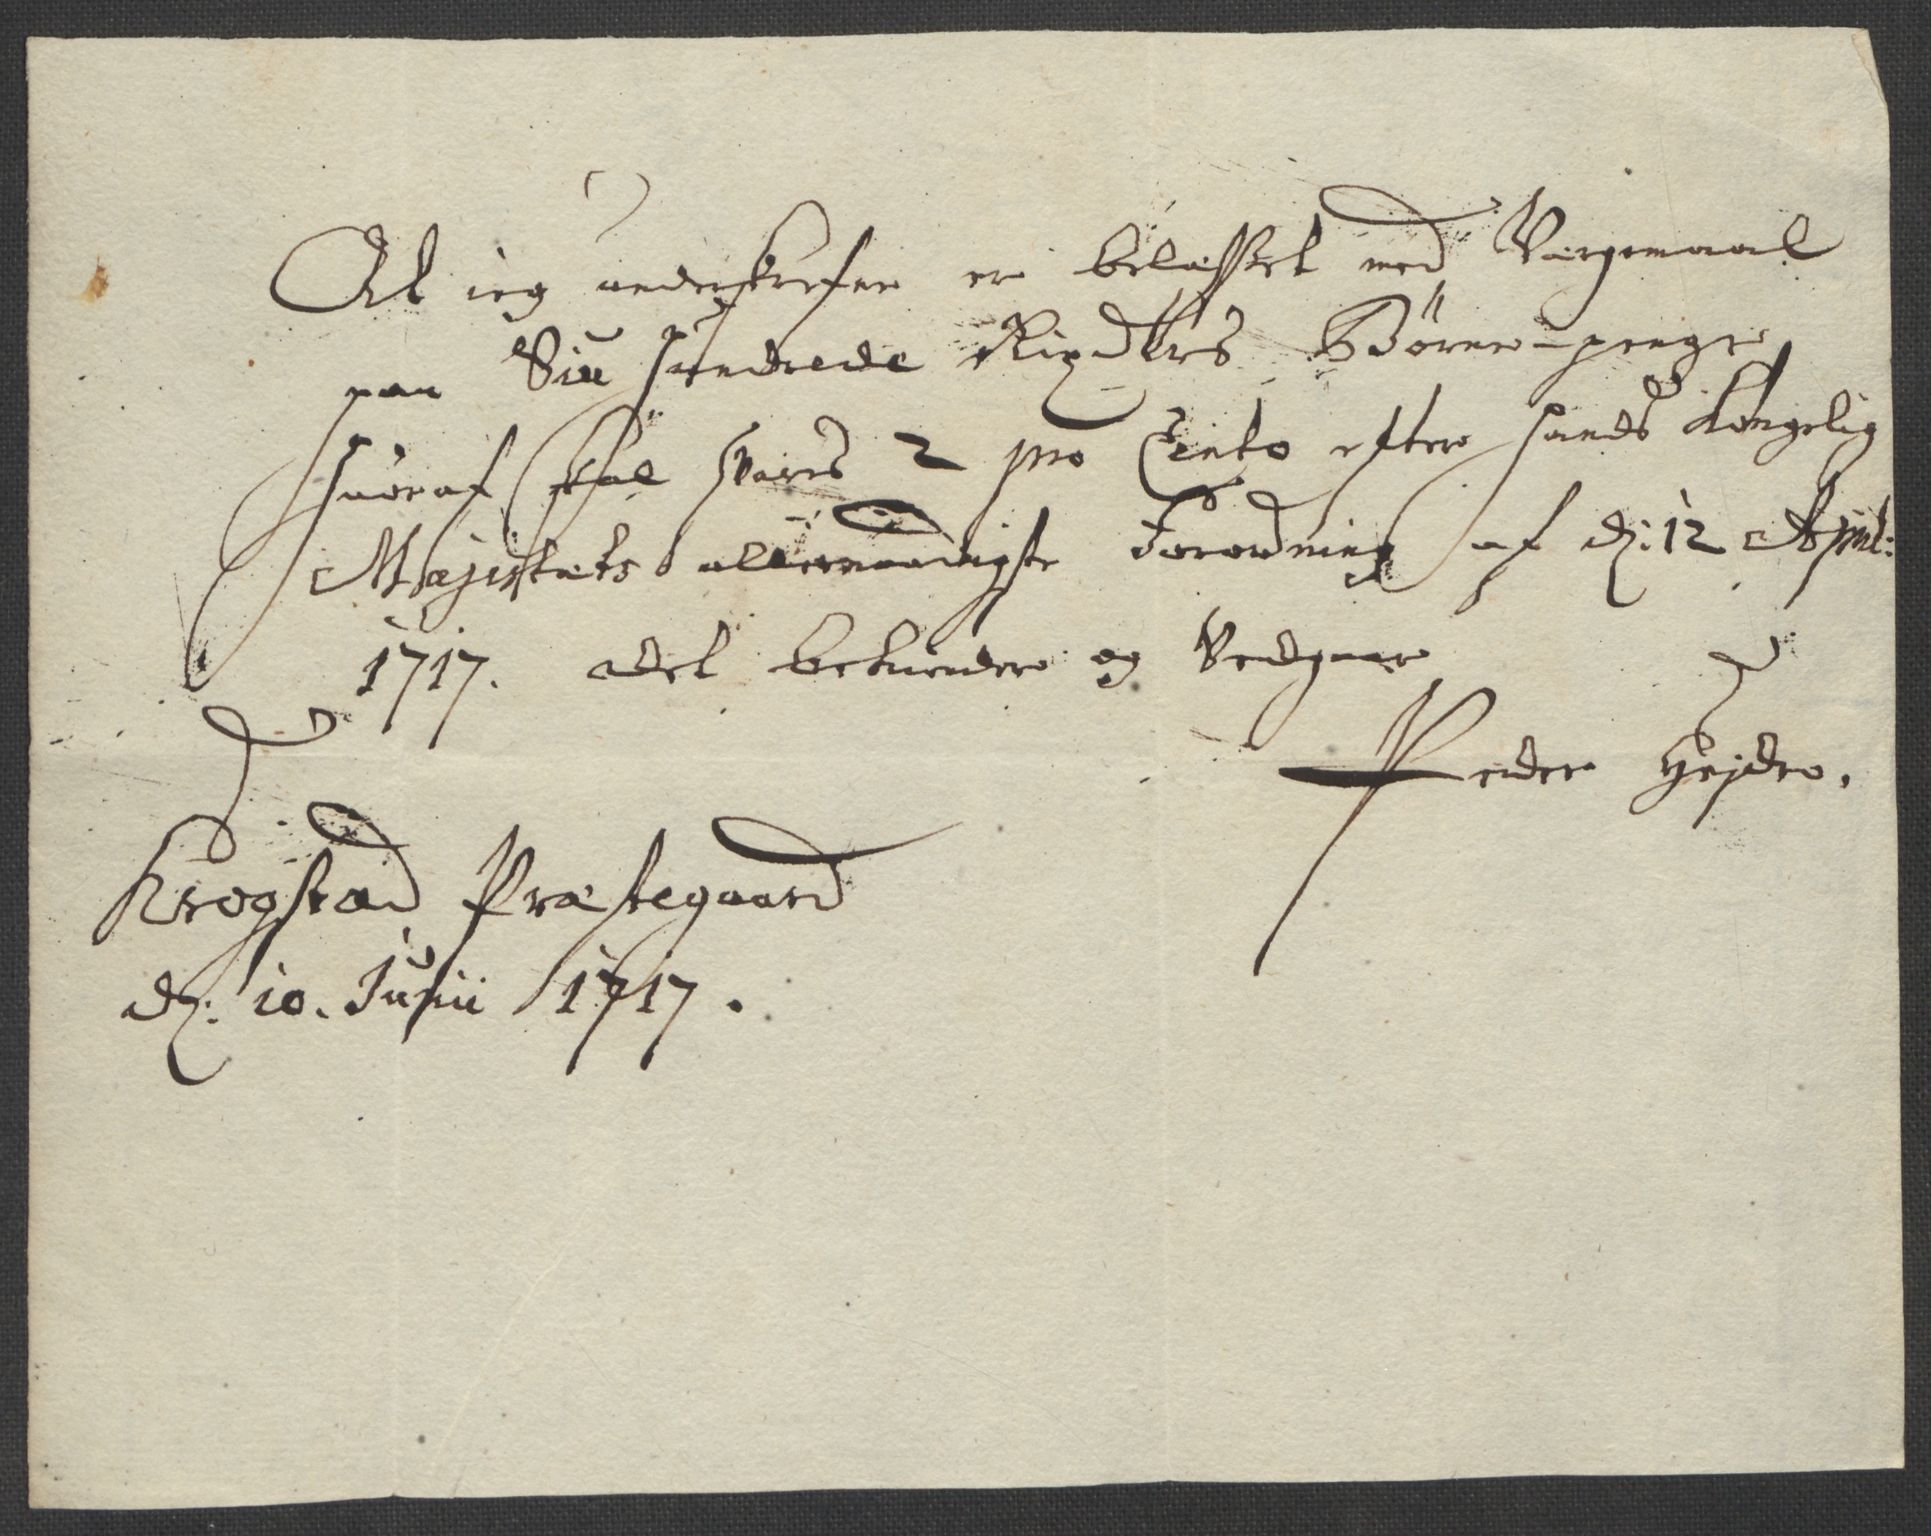 At ieg underskrefne er belasset med Wærgemaal
paa Siu hundrede Rixdlrs Börne-penge
huoraf skal svares 2 pro Cento efter hands Kongelig
Majestæts allernaadigste Forordning af d: 12 April:
1717. det bekiender og Vedgaar
Peder Hejdr.
Krogstad Præstegaard
d: 10. Junii 1717.